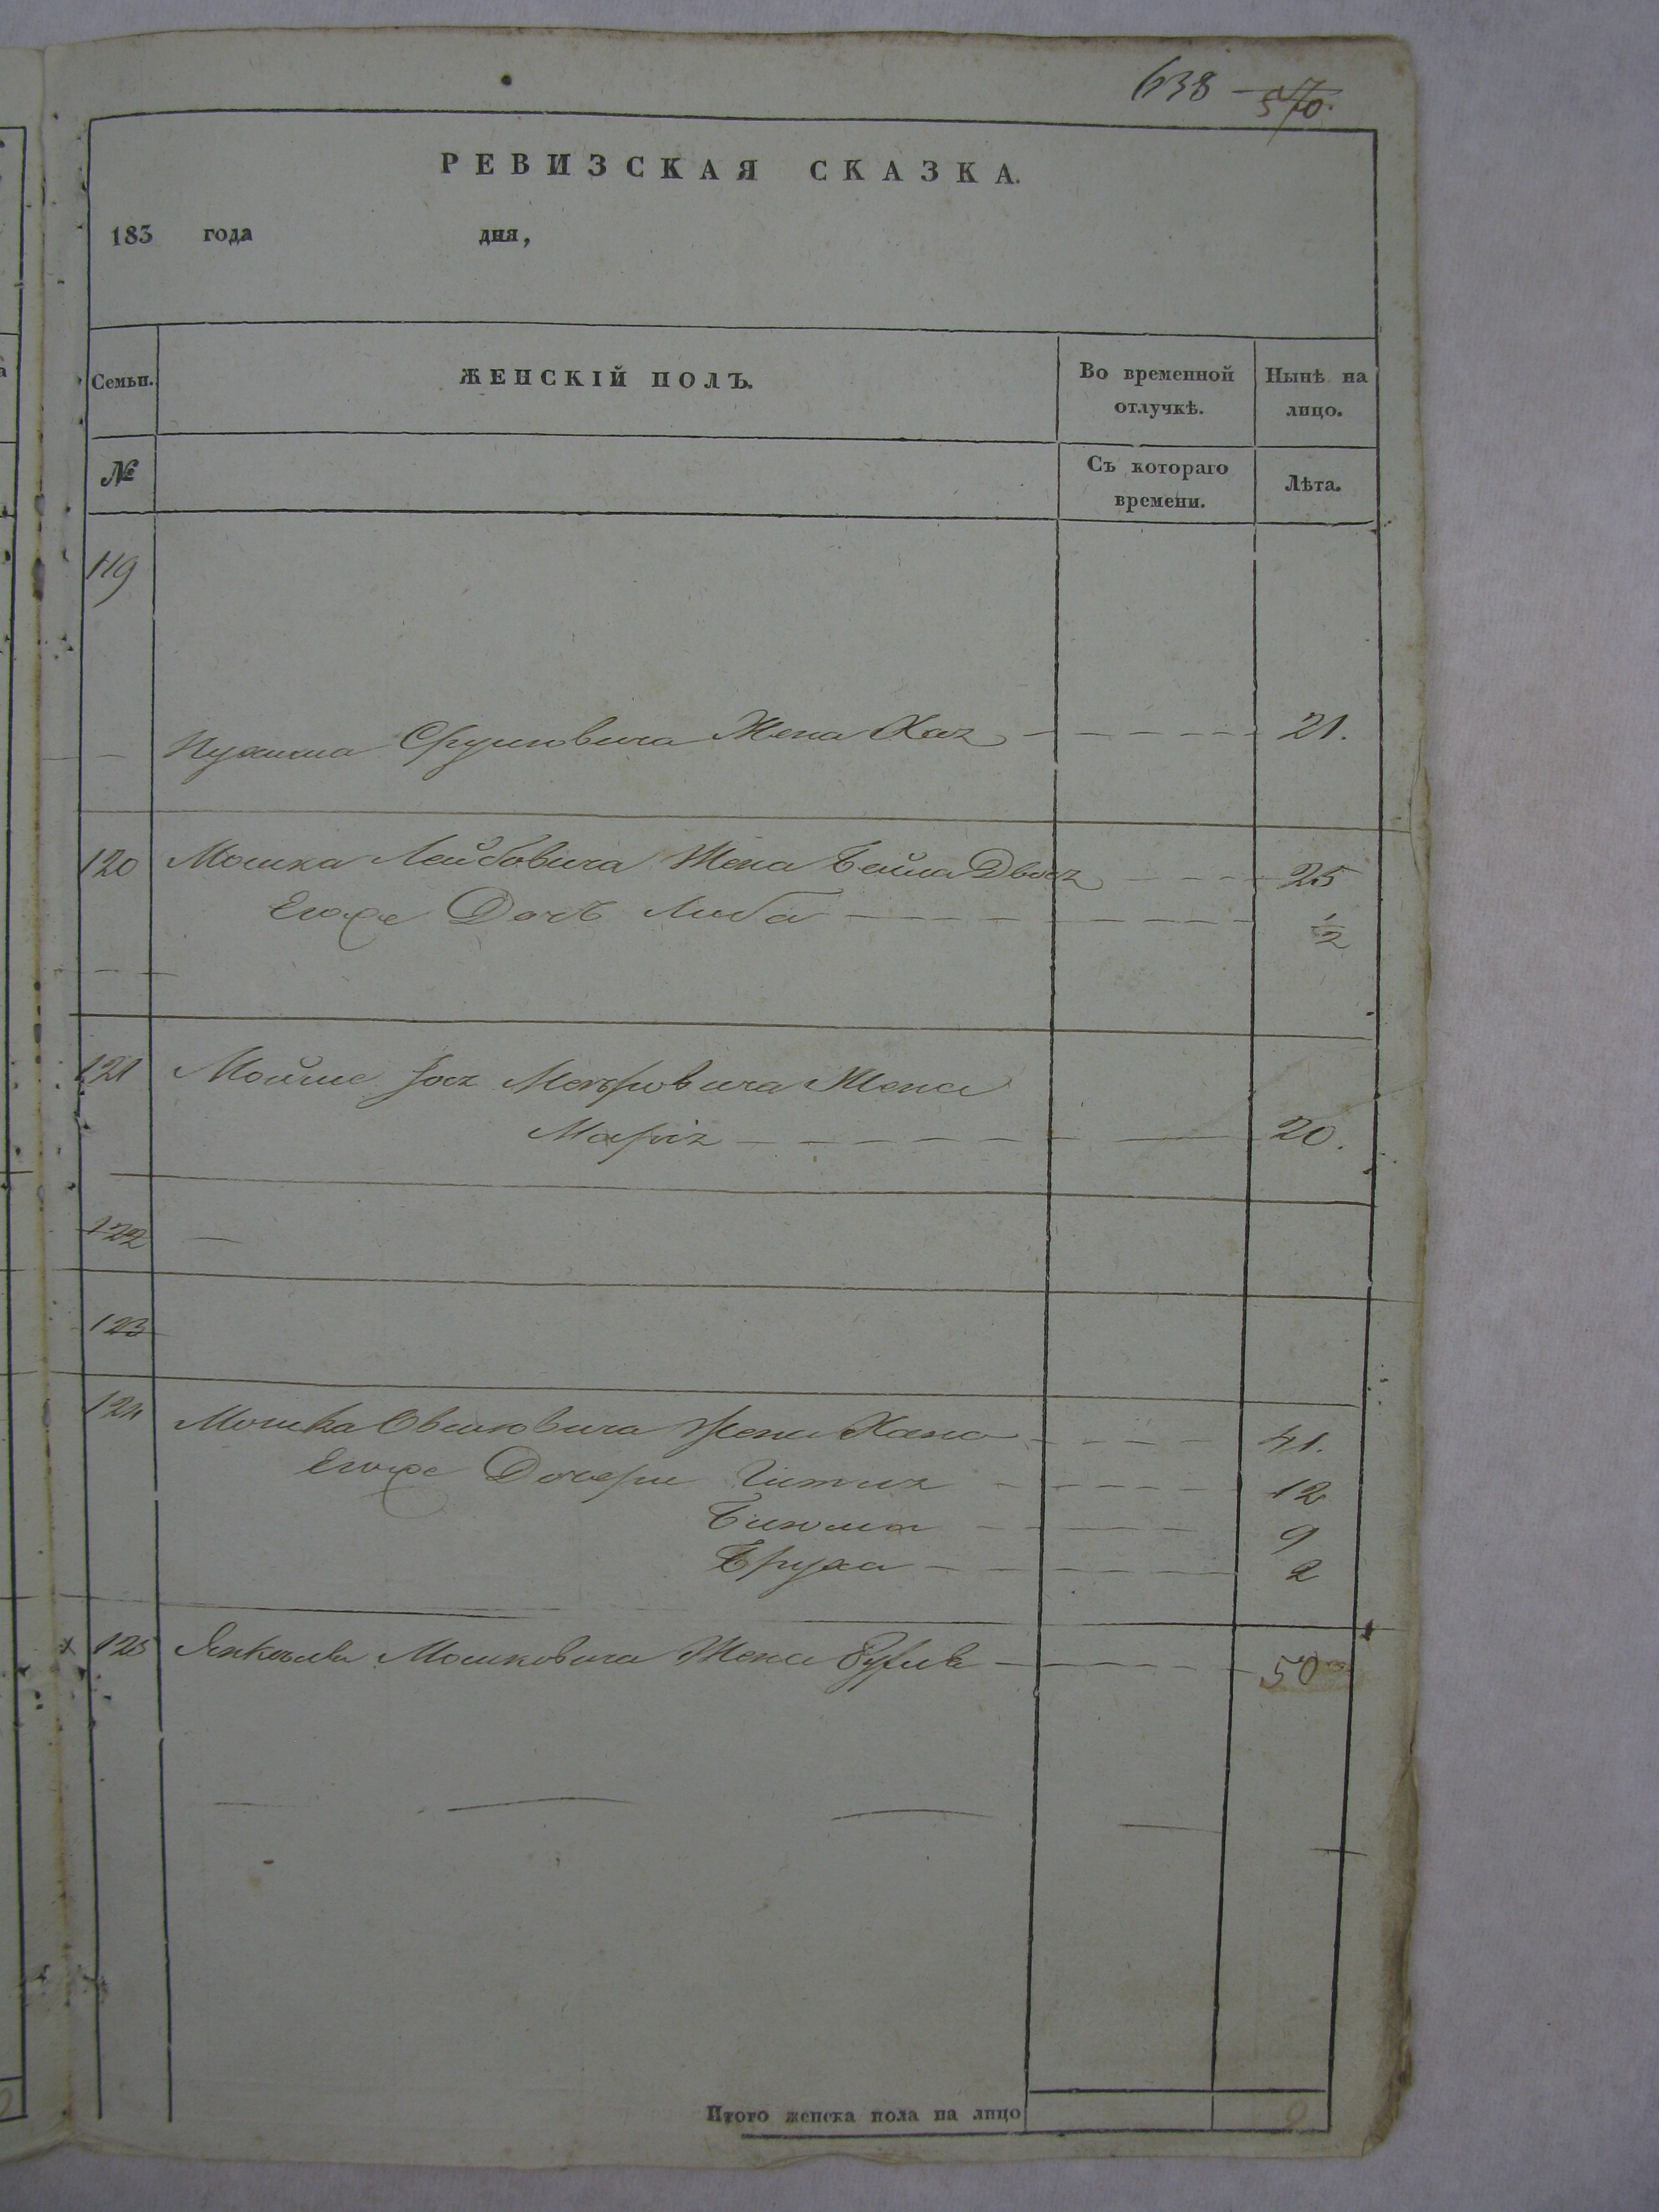 638 — 570.
РЕВИЗСКАЯ СКАЗКА.
183 года дня,
Семьи. ЖЕНСКІЙ ПОЛЪ. Во временной отлучкѣ. Нынѣ на лицо.
№ Съ котораго времени. Лѣта.
119
Нухима Сруловича Жена Хая 21.
120 Мошка Лейбовича Жена Бейла Двося 25
Егоже Дочь Либа 1/2
121 Мойше Іося Меэровича Жена
Марія 20.
122 —
123
124 Мошка Овшіовича Жена Хана 41.
Егоже Дочери Гитля 12
9
Бруха 2
125 Янкеля Мошковича Жена 50
Итого женска пола на лицо 9